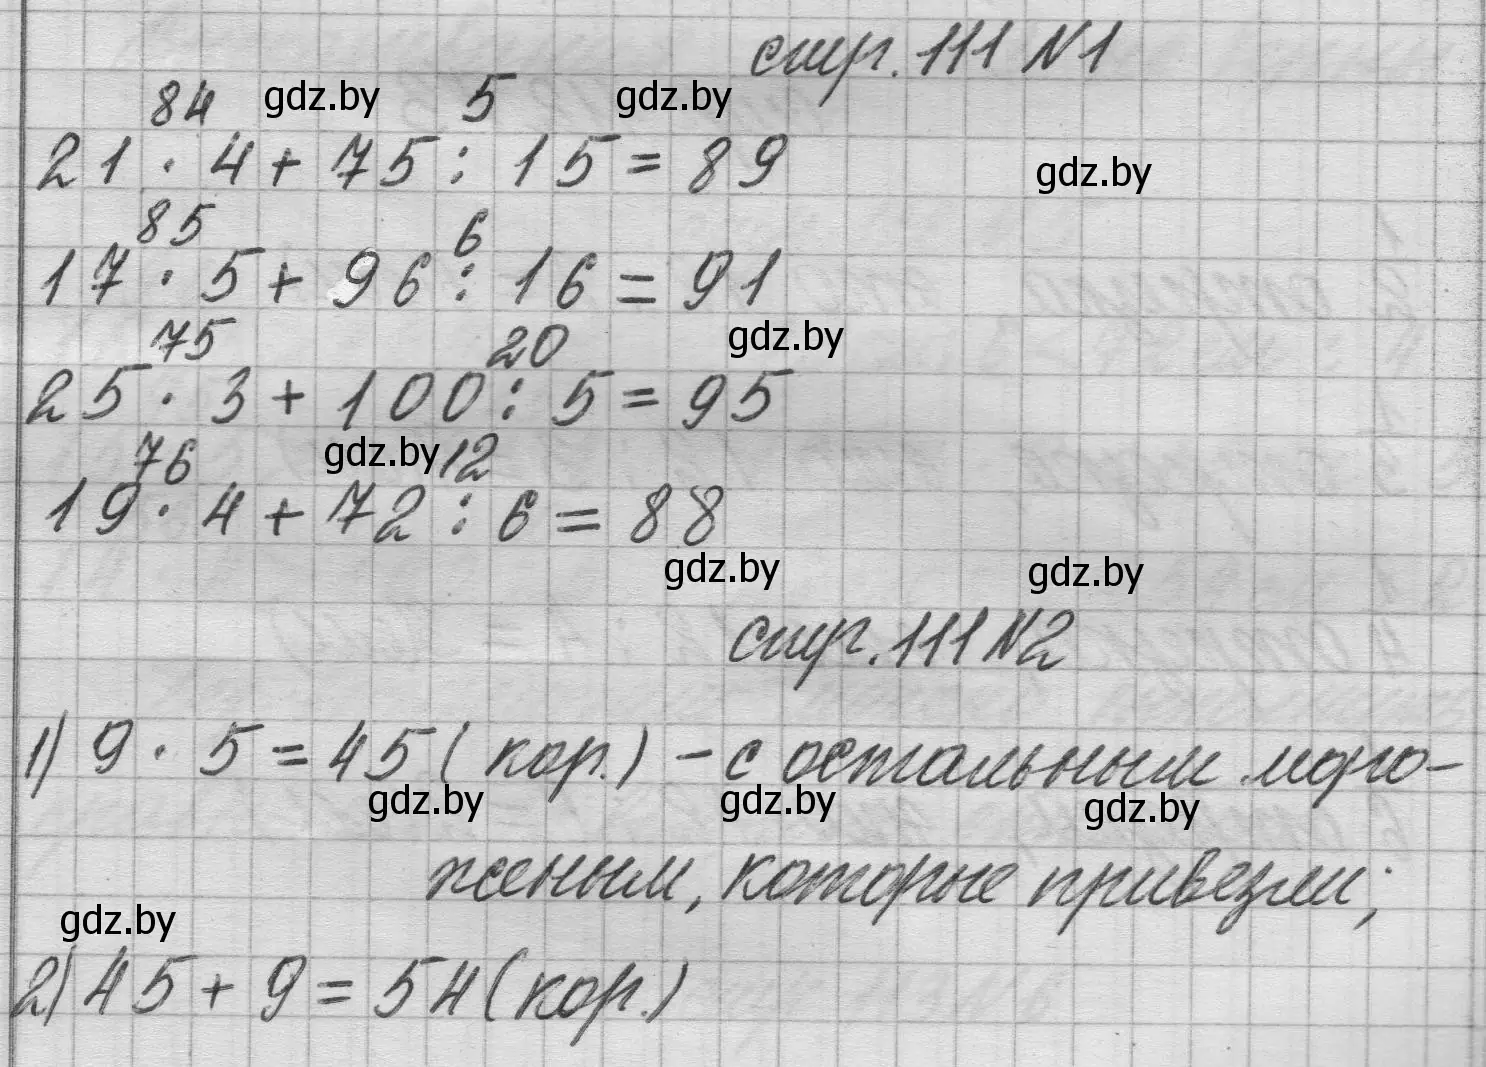 стр. 111 N1
84 gdz.by 5 gdz.by
21 · 4 + 75 : 15 = 89 gdz.by
85 6
17 · 5 + 96 : 16 = 91
75 20 gdz.by
25 · 3 + 100 : 5 = 95
76 gdz.by 12
19 · 4 + 72 : 6 = 88
gdz.by gdz.by
стр. 111 N2
1) 9 · 5 = 45 ( кор.) - с остальным моро-
gdz.by gdz.by gdz.by
женым, которые привезли;
gdz.by
2) 45 + 9 = 54 (кор.)